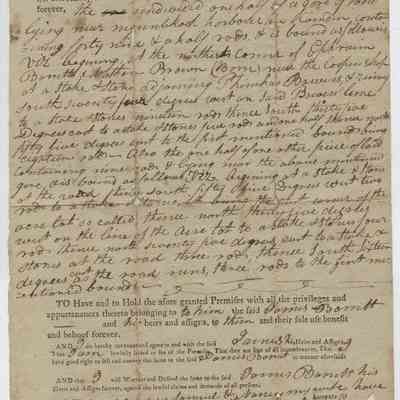 forever,
the one undivided one half of a gore of land
lying near mequnkhod harbour in franklin conta
ining forty nine & a half rods & is bound as follows
Viz begining at the north corner of
Bomtt & William Brown near the Coopers Shop
at a Stake & Stons adjoining Thomas & runing
South Seventy four degrees east on said line
to a Stake & Stones nineteen rods thence South thirty five
Degrees east to a Stake & Stones five rods and one half thence north
fifty five degrees west to the first mentioned bounds being
eighteen rods Also the one half of one other piece of land
containing nine rods & lying near the above mentioned
gore, & is bound as follows Viz begining at a stake & stons
at the road, thence South fifty five Degrees east two
rods to Stake & Stones, the first corner of the
acre lot so called, thence north thirty five degrees
east on the line of the Acre lot to a Stake & Stones four
rods thence north seventy five degrees west to a Stake &
Stones at the road three rods, thence South fifteen
degrees east the road runs, three rods to the first men
tioned bounds
TO Have and to Hold the afore granted Premises with all the privileges and
appurtenances thereto belonging to him the said James Bomtt
and his heirs and assigns, to them and their sole use benefit
and behoof forever.
AND I do hereby covenant and agree to and with the said James his Heirs and Assigns
That I am lawfully seized in fee of the Premises, That they are free of all Incumbrances, That I
good right to sell and convey the same to the said James Bomtt in manner aforesaid
AND that I will Warrant and Defend the same to the said James Bomtt his
Heirs and Assigns forever, against the lawful claims and demands of all persons.
Samuel & Nancy my wife have
hereunto